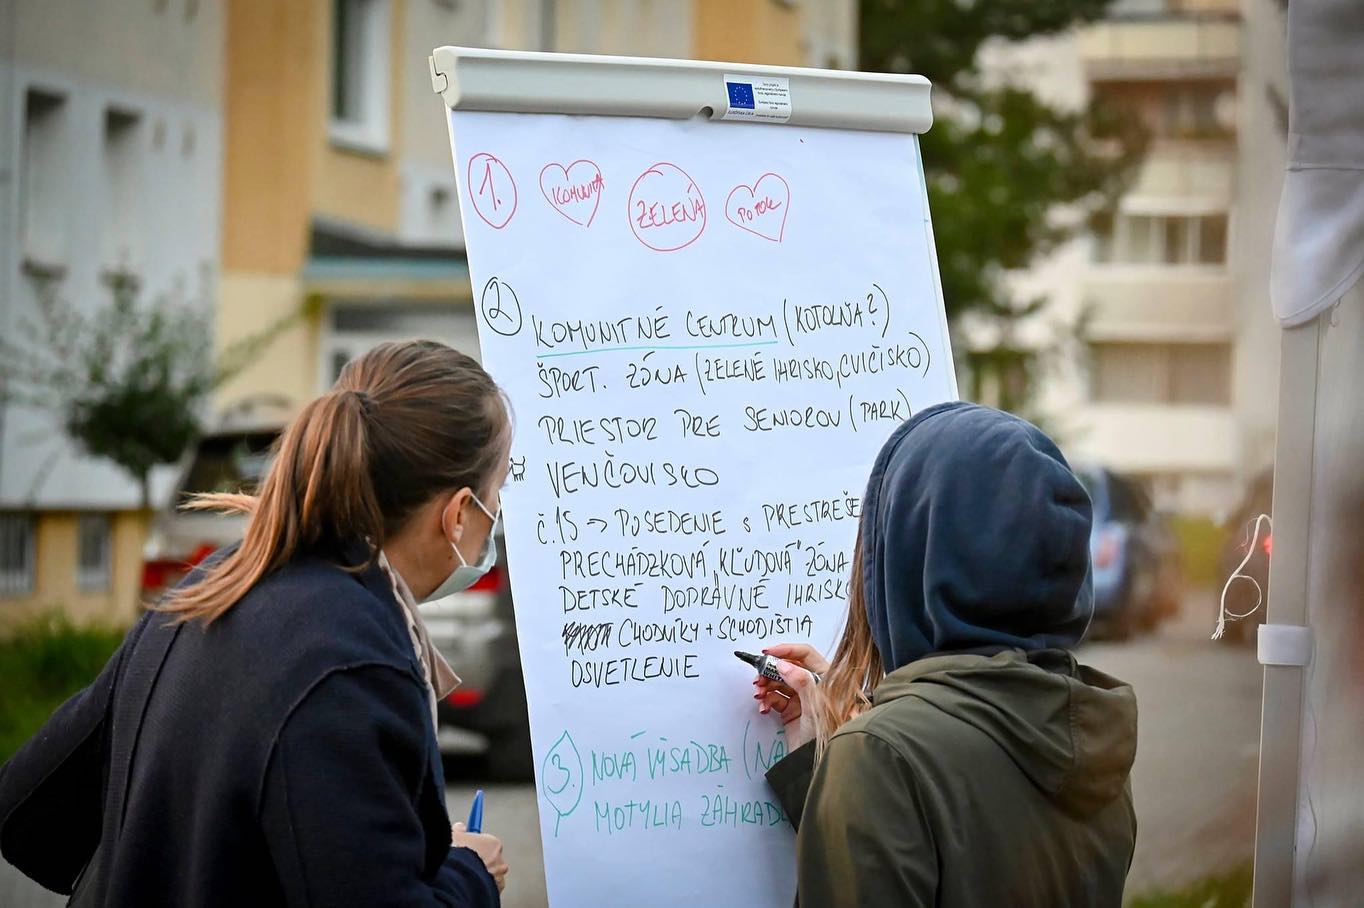 1. KOMUNITA ZELEŇ POTOK
2 KOMUNITNÉ CENTRUM (KOTOLŇA?)
ŠPORT. ZÓNA (ZELENÉ IHRISKO, CVIČISKO)
PRIESTOR PRE SENIOROV (PARK)
VENČOVISKO
Č.15 → POSEDENIE S PRESTREŠE
PRECHÁDZKOVÁ „KĽUDOVÁ" ZÓNA
DETSKÉ DOPRAVNÉ IHRISKO
CHODNÍKY + SCHODIŠTIA
OSVETLENIE
3. NOVÁ VÝSADBA (NÁ
MOTÝLIA ZÁHRAD